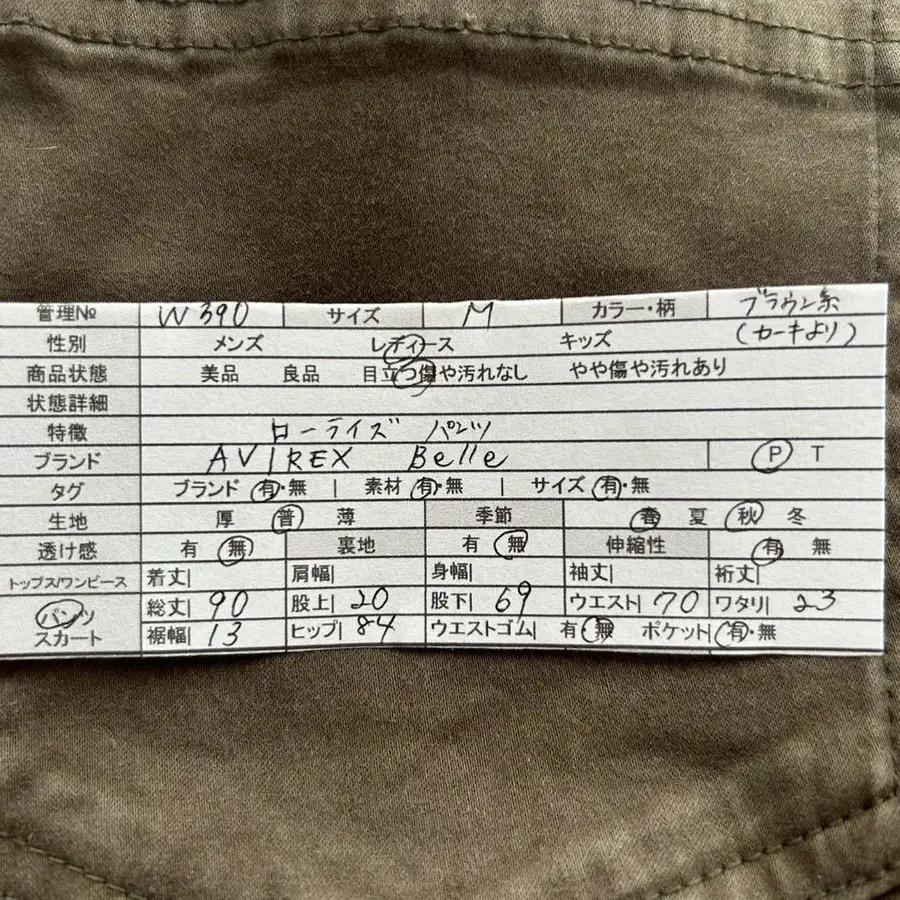 管理№ W390 サイズ M カラー・柄 ブラウン系
(カーキより)
性別 メンズ レディース キッズ
商品状態 美品 良品 目立つ傷や汚れなし やや傷や汚れあり
状態詳細
特徴 ローライズ パンツ
ブランド AVIREX Belle P T
タグ ブランド 有・無 | 素材 有・無 | サイズ 有・無
生地 厚 普 薄 季節 春 夏 秋 冬
透け感 有 無 裏地 有 無 伸縮性 有 無
トップス/ワンピース 着丈| 肩幅| 身幅| 袖丈| 裄丈|
パンツ 総丈| 90 股上| 20 股下| 69 ウエスト| 70 ワタリ| 23
スカート 裾幅| 13 ヒップ| 84 ウエストゴム| 有・無 ポケット| 有・無